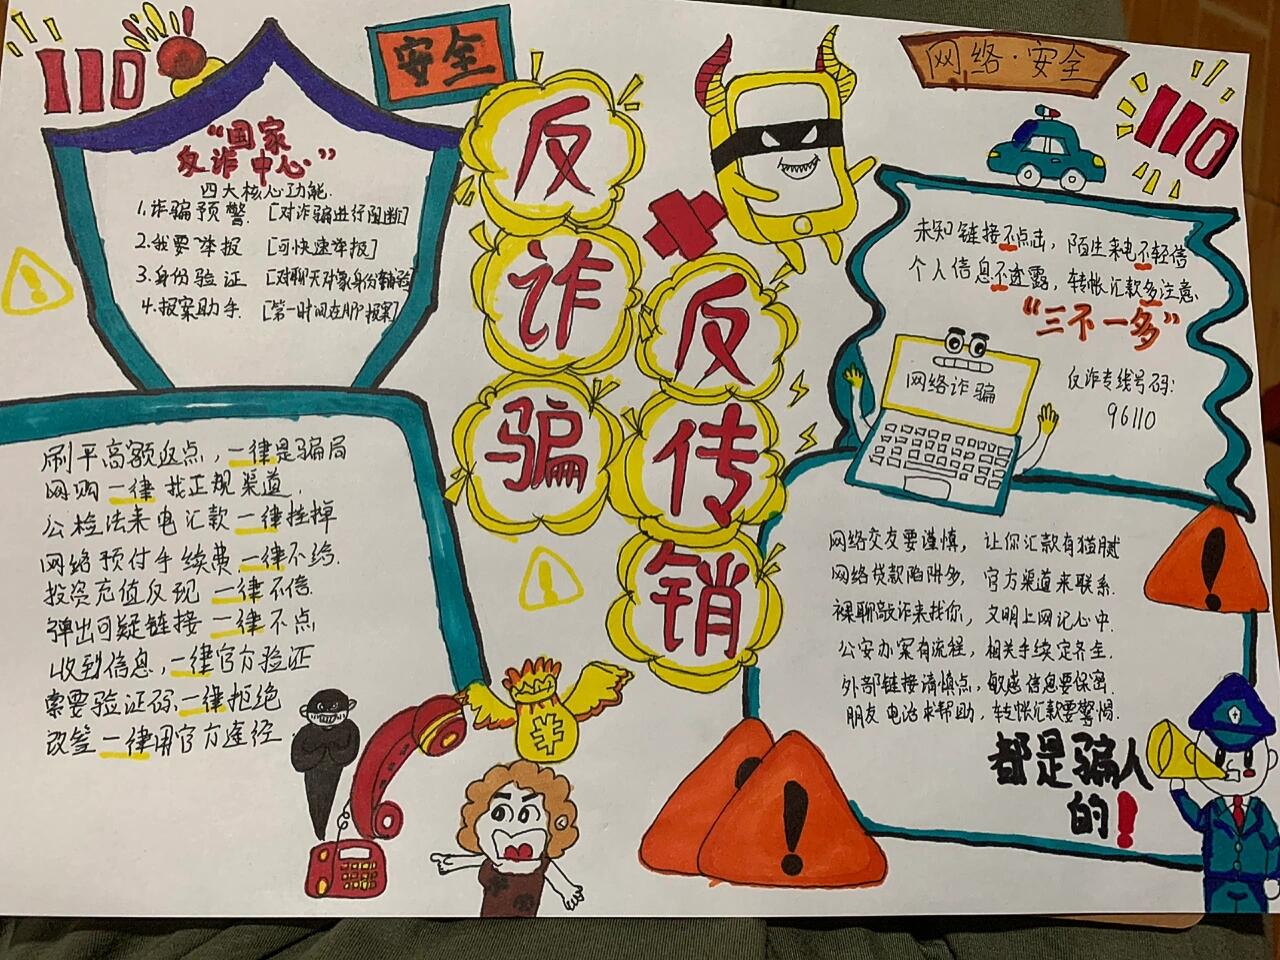 110
安全
网络·安全
110
反诈骗
反传销
“国家
反诈中心”
四大核心功能.
1.诈骗预警 [对诈骗进行阻断]
2.我要举报 [可快速举报]
3.身份验证 [对聊天对象身份精验]
4.报案助手 [第一时间在助报案]
未知链接不点击，陌生来电不轻信
个人信息不透露，转帐汇款多注意
“三不一多”
网络诈骗
反诈专线号码：
96110
刷平高额返点，一律是骗局
网购一律找正规渠道.
公检法来电汇款一律挂掉
网络预付手续费一律不给.
投资充值反现一律不信.
弹出可疑链接一律不点
收到信息，一律官方验证
索要验证码，一律拒绝
改签一律用官方途径
网络交友要谨慎，让你汇款有猫腻
网络贷款陷阱多，官方渠道来联系.
裸聊敲诈来找你，文明上网记心中.
公安办案有流程，相关手续定齐全.
外部链接请慎点，敏感信息要保密.
朋友电话求帮助，转帐汇款要警惕.
都是骗人
的！
¥